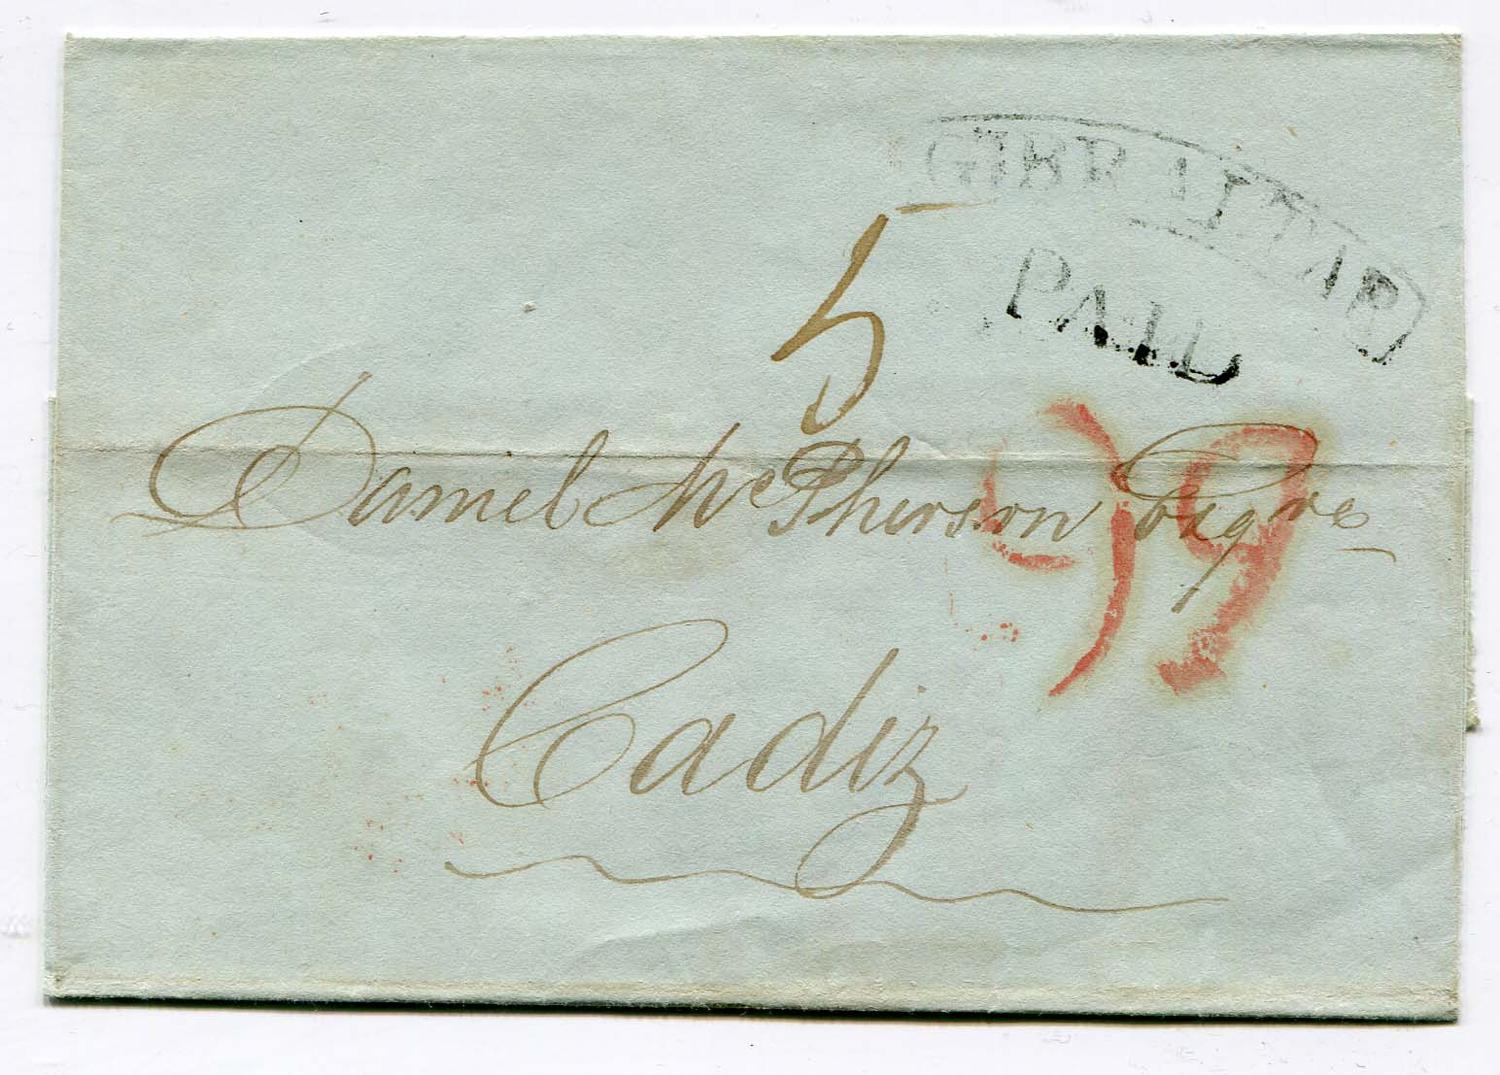 GIBRALTAR
PAID
5
99
Daniel McPherson Esqre
Cadiz